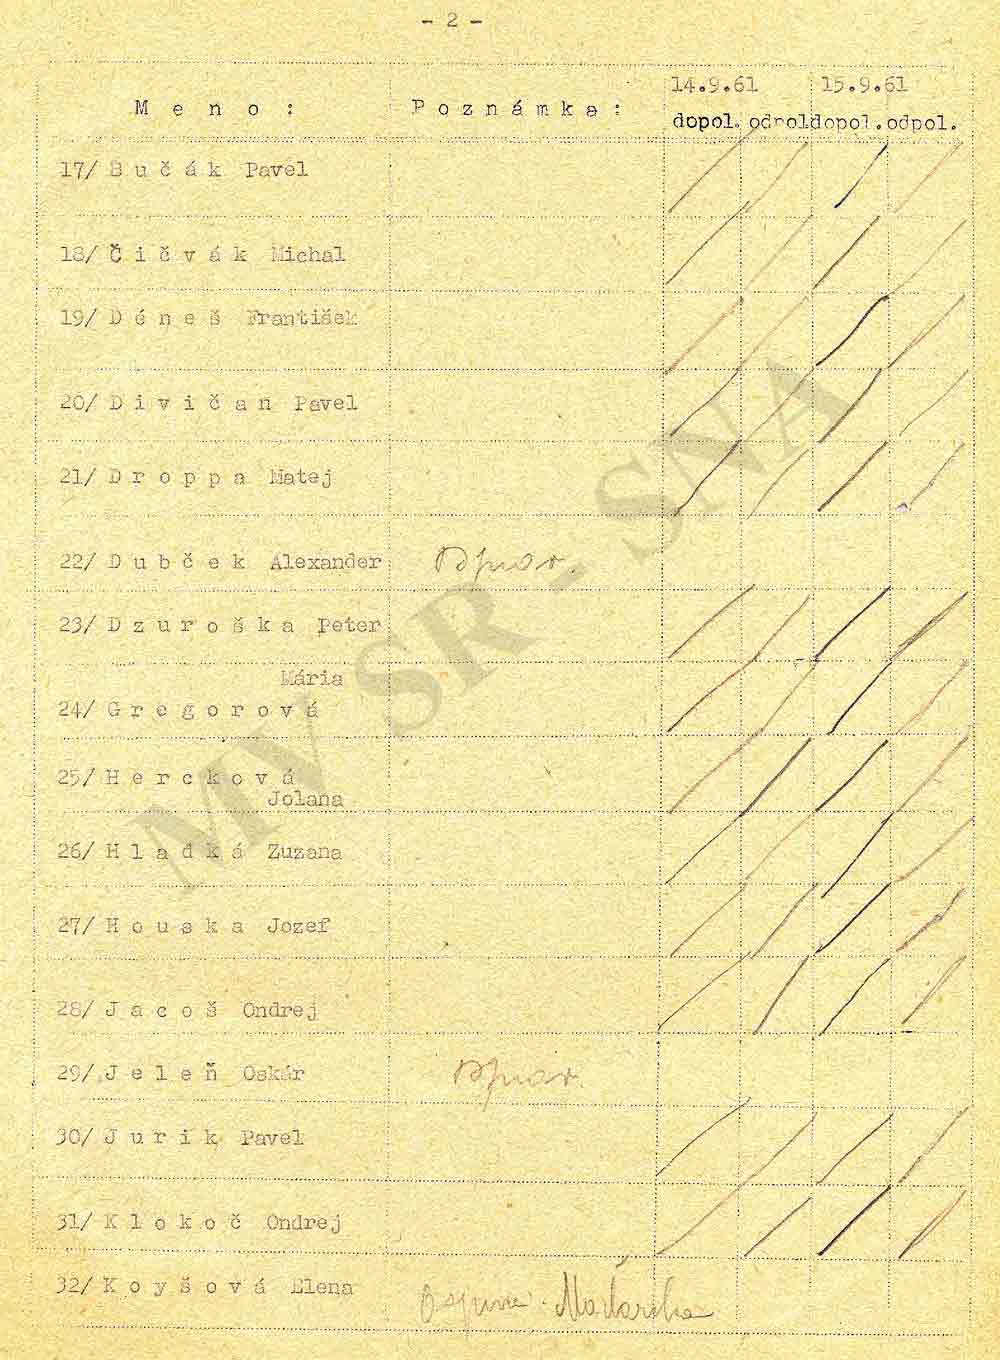 - 2 -
14.9.61 15.9.61
Meno: Poznámka:
dopol. odpol dopol. odpol.
17/ Bučák Pavel
18/ Čičvák Michal
19/ Déneš František
20/ Divičan Pavel
21/ Droppa Matej
22/ Dubček Alexander
23/ Dzuroška Peter
Mária
24/ Gregorová
25/ Hercková
Jolana
26/ Hladká Zuzana
27/ Houska Jozef
28/ Jacoš Ondrej
29/ Jeleň Oskár
30/ Jurik Pavel
31/ Klokoč Ondrej
32/ Koyšová Elena
MV SR - SNA